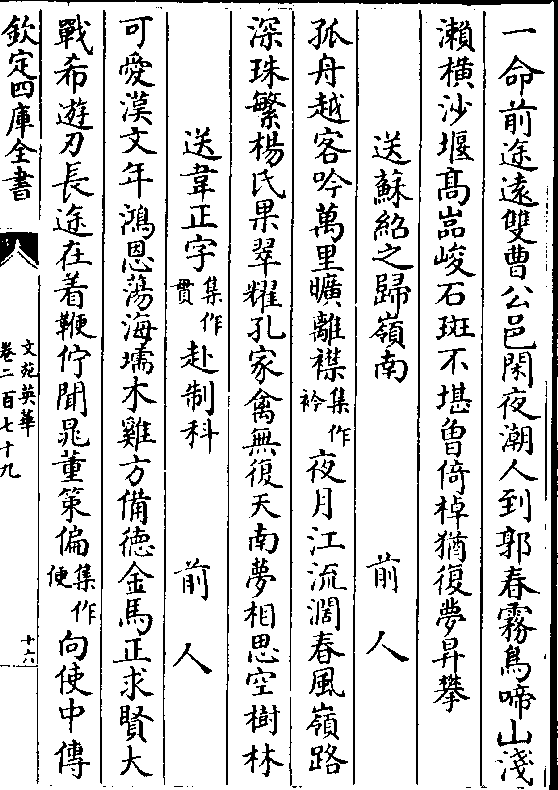 一命前途遠雙曹公邑閑夜潮人到郭春霧鳥啼山淺
瀨橫沙堰髙嵓峻石斑不堪曾倚棹猶復夢昇攀
送蘇紹之歸嶺南 前人
孤舟越客吟萬里曠離襟集作衿夜月江流濶春風嶺路
深珠繁楊氏果翠耀孔家禽無復天南夢相思空樹林
送韋正字集作貫赴制科 前人
可愛漢文年鴻恩蕩海壖木雞方備德金馬正求賢大
戰希遊刃長途在着鞭佇聞鼂董策偏集作便向使中傳
欽定四庫全書
文苑英華
卷二百七十九
十六